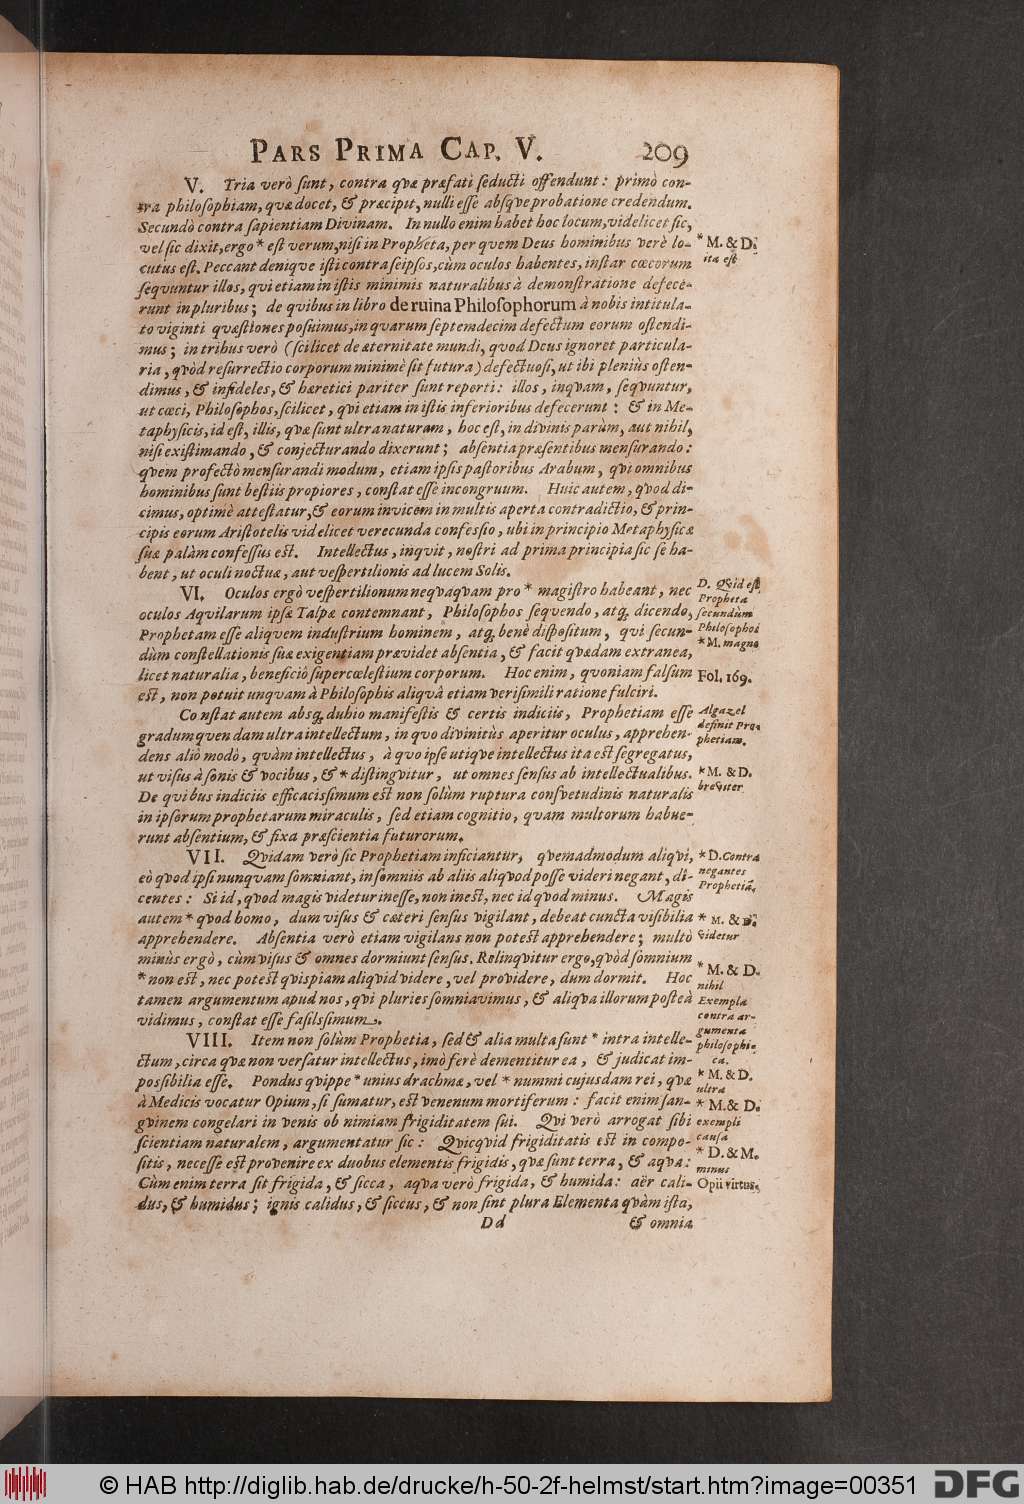 PARS PRIMA CAP. V. 209
V. Tria verò sunt, contra quæ præfati seducti offendunt: primò con-
tra philosophiam, quæ docet, & præcipit, nulli esse absque probatione credendum.
Secundò contra sapientiam Divinam. In nullo enim habet hoc locum, videlicet sic,
vel sic dixit, ergo * est verum, nisi in Propheta, per quem Deus hominibus verè lo-
* M. & D.
ita est
cutus est. Peccant denique isti contra seipsos, cùm oculos habentes, instar cœcorum
sequuntur illos, qui etiam in istis minimis naturalibus à demonstratione defece-
runt in pluribus; de quibus in libro de ruina Philosophorum à nobis intitula-
to viginti quæstiones posuimus, in quarum septemdecim defectum eorum ostendi-
mus; in tribus verò (scilicet de æternitate mundi, quod Deus ignoret particula-
ria, quòd resurrectio corporum minimè sit futura) defectuosi, ut ibi pleniùs osten-
dimus, & infideles, & hæretici pariter sunt reperti: illos, inquam, sequuntur,
ut cœci, Philosophos, scilicet, qui etiam in istis inferioribus defecerunt: & in Me-
taphysicis, id est, illis, quæ sunt ultra naturam, hoc est, in divinis parùm, aut nihil,
nisi existimando, & conjecturando dixerunt; absentia præsentibus mensurando:
quem profectò mensurandi modum, etiam ipsis pastoribus Arabum, qui omnibus
hominibus sunt bestiis propiores, constat esse incongruum. Huic autem, quod di-
cimus, optimè attestatur, & eorum invicem in multis aperta contradictio, & prin-
cipis eorum Aristotelis videlicet verecunda confessio, ubi in principio Metaphysicæ
suæ palàm confessus est. Intellectus, inquit, nostri ad prima principia sic se ha-
bent, ut oculi noctuæ, aut vespertilionis ad lucem Solis.
VI. Oculos ergò vespertilionum nequaquam pro * magistro habeant, nec
oculos Aquilarum ipsæ Talpæ contemnant, Philosophos sequendo, atq; dicendo,
Prophetam esse aliquem industrium hominem, atq; benè dispositum, qui secun-
dùm constellationis suæ exigentiam prævidet absentia, & facit quædam extranea,
licet naturalia, beneficiô supercœlestium corporum. Hoc enim, quoniam falsum
est, non potuit unquam à Philosophis aliquâ etiam verisimili ratione fulciri.
D. Quid est
Propheta
secundùm
Philosophos
* M. magno
Fol. 169.
Constat autem absq; dubio manifestis & certis indiciis, Prophetiam esse
gradum quendam ultra intellectum, in quo divinitùs aperitur oculus, apprehen-
dens aliô modô, quàm intellectus, à quo ipse utique intellectus ita est segregatus,
ut visus à sonis & vocibus, & * distinguitur, ut omnes sensus ab intellectualibus.
De quibus indiciis efficacissimum est non solùm ruptura consuetudinis naturalis
in ipsorum prophetarum miraculis, sed etiam cognitio, quam multorum habue-
runt absentium, & fixa præscientia futurorum.
Algazel
definit Pro-
phetiam.
* M. & D.
breviter
VII. Quidam verò sic Prophetiam inficiantur, quemadmodum aliqui,
eò quod ipsi nunquam somniant, in somniis ab aliis aliquod posse videri negant, di-
centes: Si id, quod magis videtur inesse, non inest, nec id quod minus. Magis
autem * quod homo, dum visus & cæteri sensus vigilant, debeat cuncta visibilia
apprehendere. Absentia verò etiam vigilans non potest apprehendere; multò
minùs ergò, cùm visus & omnes dormiunt sensus. Relinquitur ergo, quòd somnium
* non est, nec potest quispiam aliquid videre, vel providere, dum dormit. Hoc
tamen argumentum apud nos, qui pluries somniavimus, & aliqua illorum posteà
vidimus, constat esse falsissimum.
* D. Contra
negantes
Prophetiã.
* M. & D.
videtur
* M. & D.
nihil
Exempla
contra ar-
gumenta
philosophi-
ca.
VIII. Item non solùm Prophetia, sed & alia multa sunt * intra intelle-
ctum, circa quæ non versatur intellectus, imò ferè dementitur ea, & judicat im-
possibilia esse. Pondus quippe * unius drachmæ, vel * nummi cujusdam rei, quæ
à Medicis vocatur Opium, si sumatur, est venenum mortiferum: facit enim san-
guinem congelari in venis ob nimiam frigiditatem sui. Qui verò arrogat sibi
scientiam naturalem, argumentatur sic: Quicquid frigiditatis est in compo-
sitis, necesse est provenire ex duobus elementis frigidis, quæ sunt terra, & aqua:
Cùm enim terra sit frigida, & sicca, aqua verò frigida, & humida: aër cali-
dus, & humidus; ignis calidus, & siccus, & non sint plura Elementa quàm ista,
* M. & D.
ultra
* M. & D.
exempli
causa
* D. & M.
minus
Opii virtus.
Dd & omnia
© HAB http://diglib.hab.de/drucke/h-50-2f-helmst/start.htm?image=00351 DFG